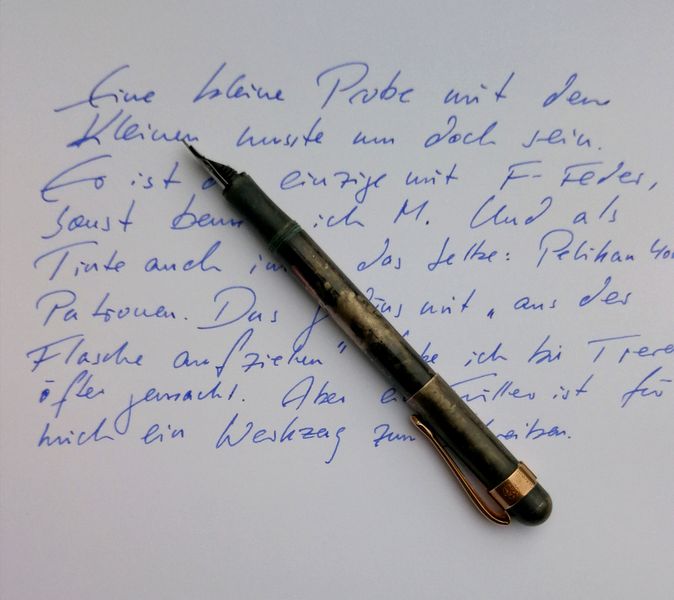 Eine kleine Probe mit dem
Kleinen musste nun doch sein.
Es ist einzige mit F-Feder,
sonst ich M. Und als
Tinte auch das selbe: Pelikan
Patronen. Das mit „aus der
Flasche aufziehen" ich bei
öfter gemacht. Aber Füller ist für
mich ein Werkzeug zum